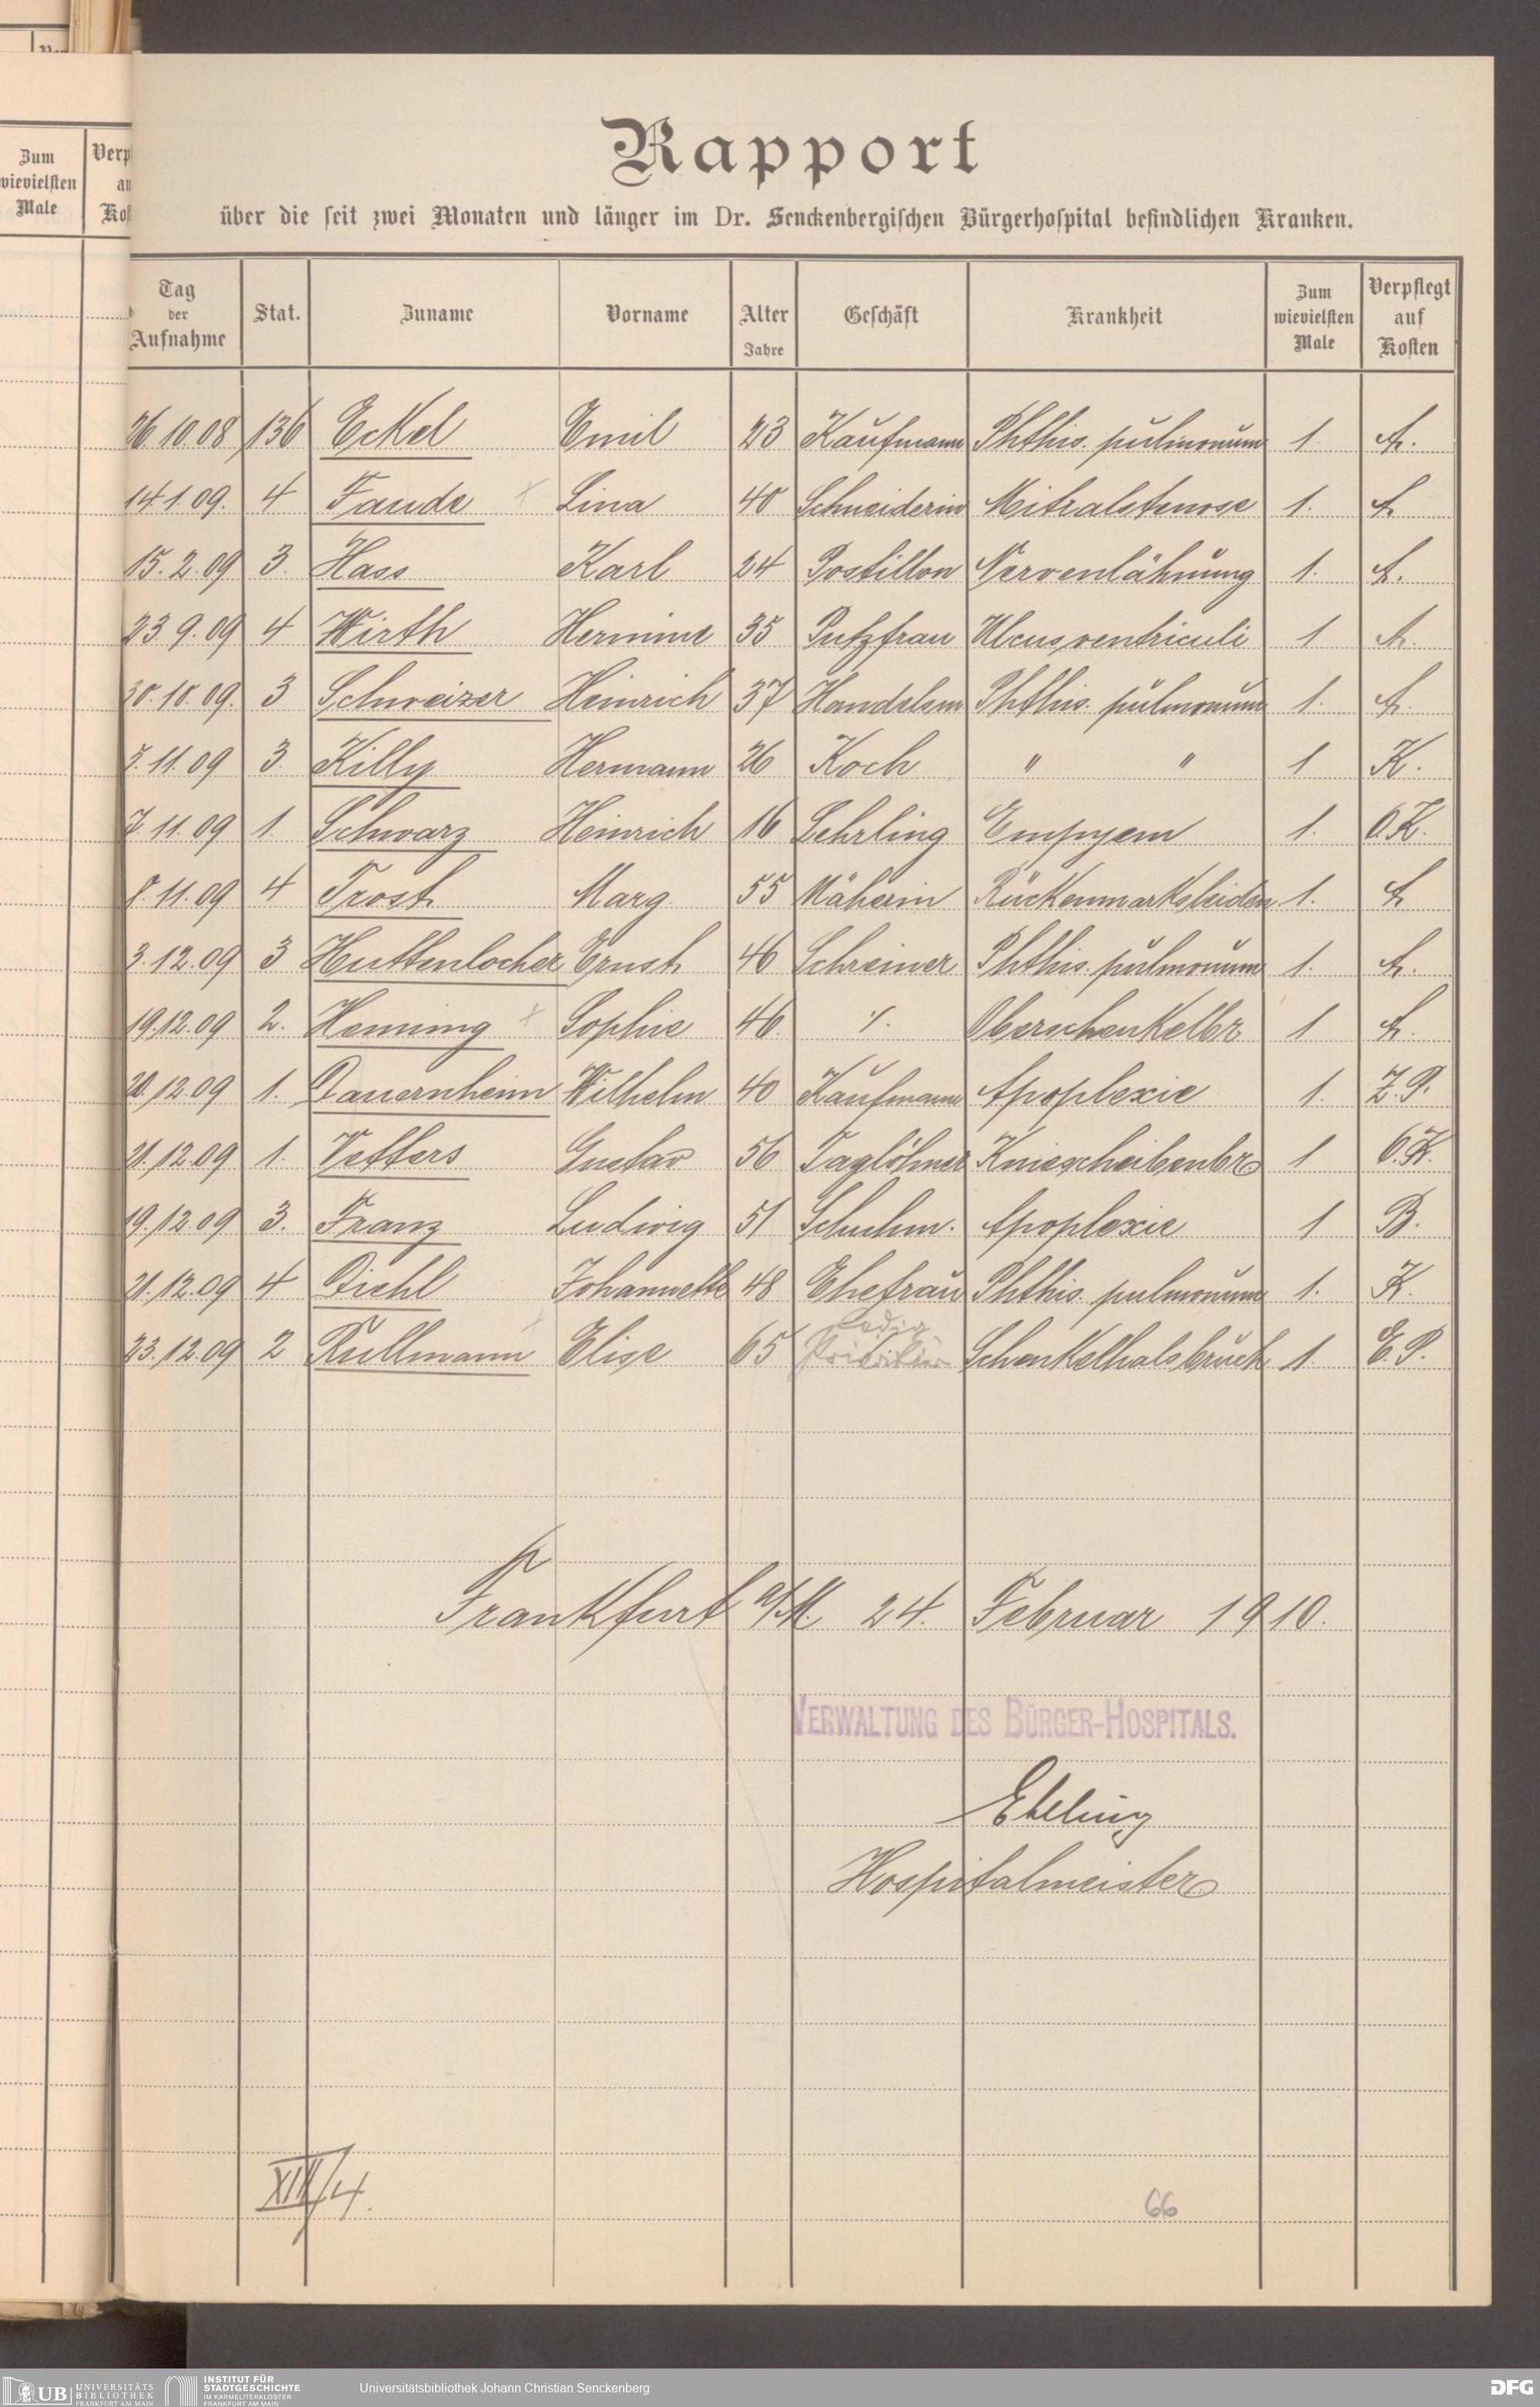 Zum
wievielsten
Male
Verp
au
Kos
Rapport
über die seit zwei Monaten und länger im Dr. Senckenbergischen Bürgerhospital befindlichen Kranken.
Tag der Aufnahme Stat. Zuname Vorname Alter Jahre Geschäft Krankheit Zum wievielsten Male Verpflegt auf Kosten
26.10.08 136 Eckel Emil 23 Kaufmann Phthis. pulmonum 1. A.
14.1.09. 4 Faude x Lina 40 Schneiderin Mitralstenose 1. A.
15.2.09 3. Hass Karl 24 Postillon Nervenlähmung 1. A.
23.9.09 4 Wirth Hermine 35 Putzfrau Ulcus ventriculi 1 A.
30.10.09. 3 Schweizer Heinrich 37 Handelsm Phthis. pulmonum 1. A.
11.09 3. Killy Hermann 26 Koch " " 1 K.
7.11.09 1. Schwarz Heinrich 16 Lehrling Empyem 1. O.K.
8.11.09 4 Trost Marg. 55 Näherin Rückenmarksleiden 1. A
3.12.09 3 Huttenlocher Ernst 46 Schreiner Phthis. pulmonum 1. A.
19.12.09 2. Henning x Sophie 46. Oberschenkelbr. 1 A.
20.12.09 1. Dauernheim Wilhelm 40 Kaufmann Apoplexie 1. Z.P.
21.12.09 1. Vetters Gustav 56 Taglöhner Kniescheibenbr. 1 O.K.
19.12.09 3. Franz Ludwig 51 Schuhm. Apoplexie 1 B.
21.12.09 4 Diehl Johannette 48 Ehefrau Phthis. pulmonum 1. K.
ledig
23.12.09 2 Kullmann x Elise 65 Schenkelhalsbruch 1. E.P.
Frankfurt a/M. 24. Februar 1910.
VERWALTUNG DES BÜRGER-HOSPITALS.
Ebeling
Hospitalmeister
XIII/4.
66
UB UNIVERSITÄTS
BIBLIOTHEK
FRANKFURT AM MAIN
INSTITUT FÜR
STADTGESCHICHTE
IM KARMELITERKLOSTER
FRANKFURT AM MAIN
Universitätsbibliothek Johann Christian Senckenberg
DFG